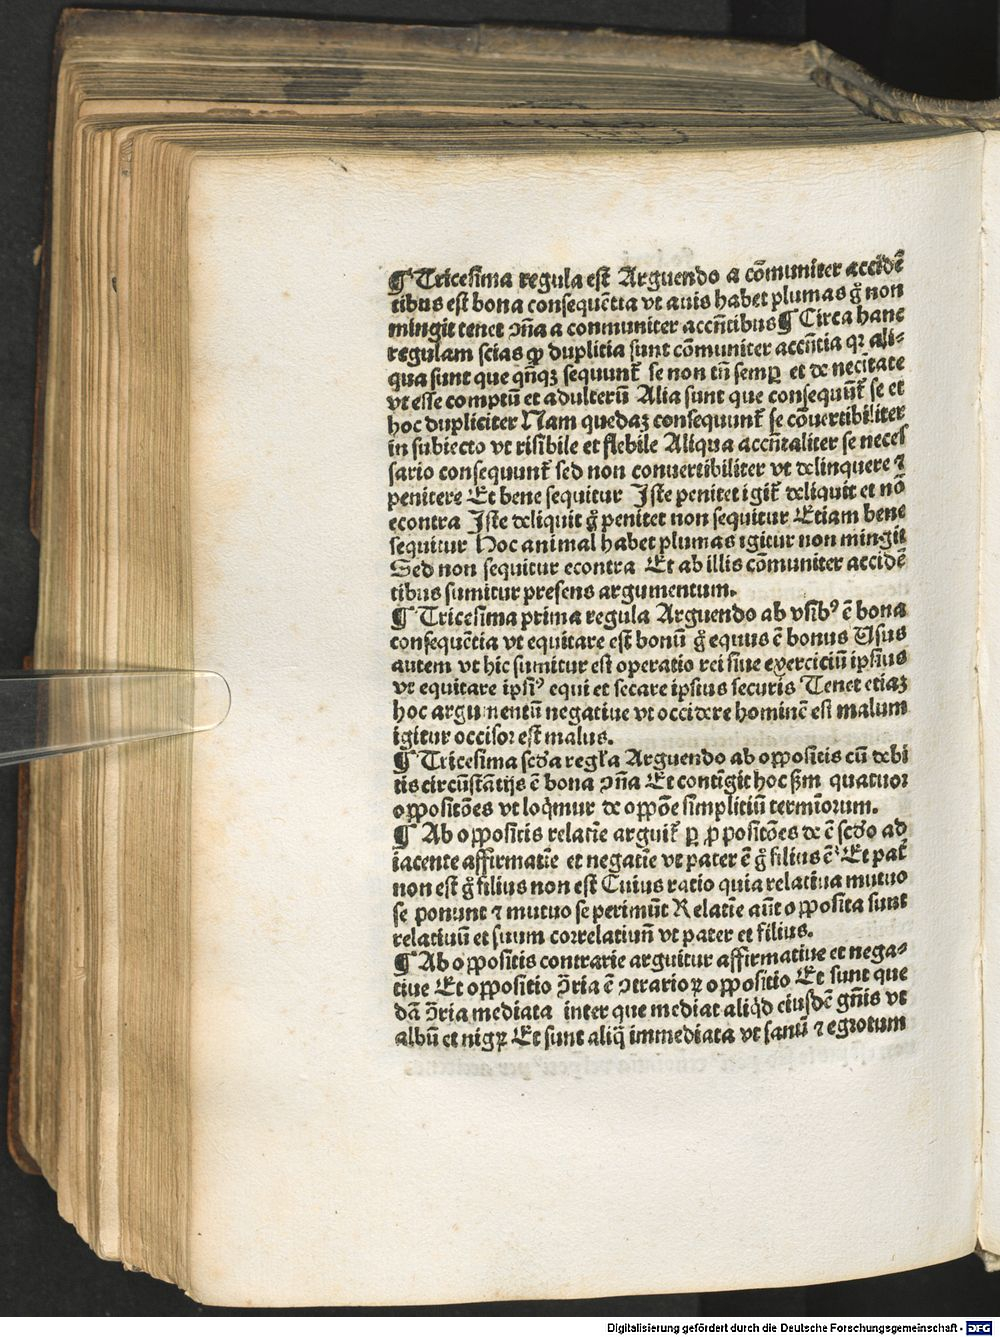 ¶ Tricesima regula est Arguendo a cõmuniter accidẽ
tibus est bona consequẽtia vt auis habet plumas g̊ non
mingit tenet ↄñа a conmuniter accñtibus ¶ Circa hanc
regulam scias ꝙ duplitia sunt cõmuniter accñtia qꝛ ali⸗
qua sunt que qñqꝫ sequunt᷑ se non tñ semꝑ et de necĩtate
vt esse comptũ et adulterũ Alia sunt que consequũt᷑ se et
hoc dupliciter Nam quedaꝫ consequunt᷑ se cõuertibiliter
in subiecto vt risibile et flebile Aliqua accñtaliter se neces
sario consequunt᷑ sed non conuertibiliter vt delinquere ⁊
penitere Et bene sequitur Iste penitet igit᷑ deliquit et nõ
econtra Iste deliquit g̊ penitet non sequitur Etiam bene
sequitur Hoc animal habet plumas igitur non mingit
Sed non sequitur econtra Et ab illis cõmuniter accidẽ
tibus sumitur presens argumentum.
¶ Tricesima prima regula Arguendo ab vsibꝰ ẽ bona
consequẽtia vt equitare est bonũ g̊ equus ẽ bonus Usus
autem vt hic sumitur est operatio rei siue exerciciũ ipsius
vt equitare ipsiꝰ equi et secare ipsius securis Tenet etiaꝫ
hoc argumentũ negatiue vt occidere hominẽ est malum
igitur occisor est malus.
¶ Tricesima scd̓a regl̓a Arguendo ab oppositis cũ debi
tis circũstãtijs ẽ bona ↄña Et contĩgit hoc ẜm quatuor
oppositões vt loq̃mur de oppõe simpliciũ termĩorum.
¶ Ab oppositis relatĩe arguit᷑ ꝑ ꝓpositões de ẽ scd̓o ad
iacente affirmatĩe et negatĩe vt pater ẽ g̊ filius ẽ Et pat᷑
non est g̊ filius non est Cuius ratio quia relatiua mutuo
se ponunt ⁊ mutuo se perimũt Relatĩe aũt opposita sunt
relatiuũ et suum correlatiuũ vt pater et filius.
¶ Ab oppositis contrarie arguitur affirmatiue et nega⸗
tiue Et oppositio ↄ̃ria ẽ ↄtrarioꝝ oppositio Et sunt que
dã ↄ̃ria mediata inter que mediat aliq̇d eiusdẽ gñis vt
albũ et nigꝝ Et sunt aliq̃ immediata vt sanũ ⁊ egrotum
Digitalisierung gefördert durch die Deutsche Forschungsgemeinschaft - DFG